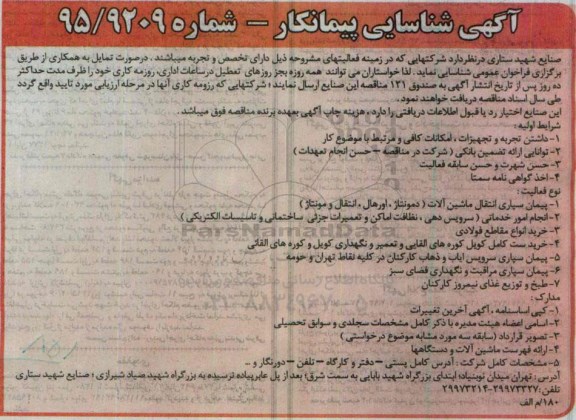 آگهی شناسایی پیمانکار – شماره ۹۵/۹۲۰۹
صنایع شهید ستاری درنظردارد شرکتهایی که در زمینه فعالیتهای مشروحه ذیل دارای تخصص و تجربه میباشند . درصورت تمایل به همکاری از طریق
برگزاری فراخوان عمومی شناسایی نماید . لذا خواستاران می توانند همه روزه بجز روزهای تعطیل درساعات اداری، روزمه کاری خود را ظرف مدت حداکثر
ده روز پس از تاریخ انتشار آگهی به صندوق ۱۳۱ مناقصه این صنایع ارسال نمایند ؛ شرکتهایی که رزومه کاری آنها در مرحله ارزیابی مورد تایید واقع گردد
طی سال اسناد مناقصه دریافت خواهند نمود.
این صنایع اختیار رد یا قبول اطلاعات دریافتی را دارد ، هزینه چاپ آگهی بعهده برنده مناقصه فوق میباشد .
شرایط اولیه:
۱- داشتن تجربه و تجهیزات ، امکانات کافی و مرتبط با موضوع کار
۲- توانایی ارائه تضمین بانکی ( شرکت در مناقصه – حسن انجام تعهدات )
۳- حسن شهرت و حسن سابقه فعالیت
۴- اخذ گواهی نامه سمتا
نوع فعالیت :
۱- پیمان سپاری انتقال ماشین آلات ( دمونتاژ ، اورهال ، انتقال و مونتاژ )
۲- انجام امور خدماتی ( سرویس دهی ، نظافت اماکن و تعمیرات جزئی ساختمانی و تاسیسات الکتریکی )
۳- خرید انواع مقاطع فولادی
۴- خرید ست کامل کویل کوره های القایی و تعمیر و نگهداری کویل و کوره های القائی
۵- پیمان سپاری سرویس ایاب و ذهاب کارکنان در کلیه نقاط تهران و حومه
۶- پیمان سپاری مراقبت و نگهداری فضای سبز
۷- طبخ و توزیع غذای نیمروز کارکنان
مدارک :
۱- کپی اساسنامه ، آگهی آخرین تغییرات
۲- اسامی اعضاء هیئت مدیره با ذکر کامل مشخصات سجلدی و سوابق تحصیلی
۳- تصویر قرارداد (سابقه سه مورد مشابه موضوع درخواستی )
۴- ارائه فهرست ماشین آلات و دستگاهها
۵- مشخصات کامل شرکت : آدرس کامل پستی – دفتر و کارگاه – تلفن – دورنگار و ...
آدرس : تهران میدان نوبنیاد؛ ابتدای بزرگراه شهید بابایی به سمت شرق؛ بعد از پل عابرپیاده نرسیده به بزرگراه شهید صیاد شیرازی ؛ صنایع شهید ستاری
تلفن: ۲۹۹۷۳۳۲۷-۲۹۹۷۳۲۱۴
۱۸۰/م الف
ParsNamadData
۰۲۱-۸۸۳۴۹۶۷۰-۵